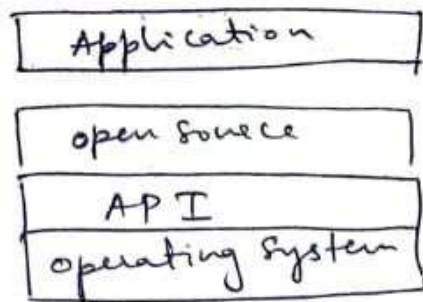 Application
open sourece
API
operating system